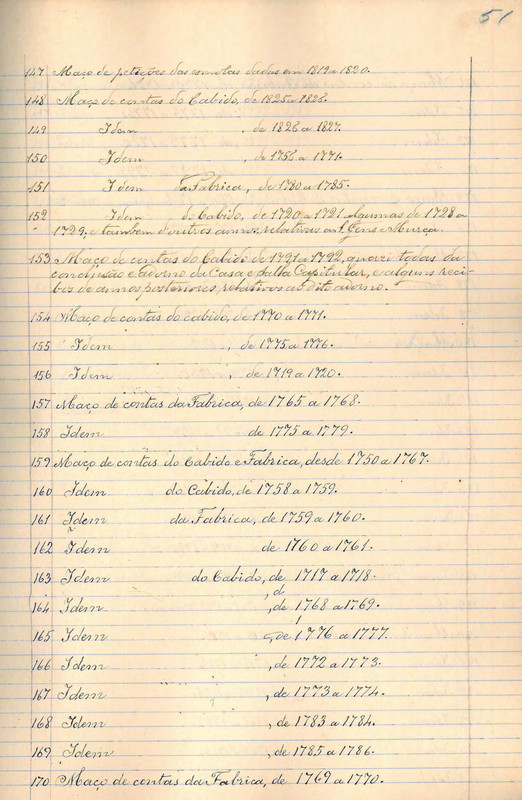 51
147 Maço de petições das esmolas dadas em 1819 a 1820.
148 Maço de contas do Cabido, de 1825 a 1826.
149 Idem , de 1826 a 1827.
150 Idem , de 1756 a 1771.
151 Idem da Fabrica, de 1780 a 1785.
152 Idem do Cabido, de 1720 a 1721 algumas de 1728 a
1729, e tambem d'outros annos relativas a Murça.
153 Maço de contas do Cabido de 1791 a 1792, quasi todas da
conclusão e adorno da Casa e Salla Capitular, e alguns reci-
bos de annos posteriores relativos ao dito adorno.
154 Maço de contas do Cabido, de 1770 a 1771.
155 Idem , de 1775 a 1776.
156 Idem , de 1719 a 1720.
157 Maço de contas da Fabrica, de 1765 a 1768.
158 Idem de 1775 a 1779.
159 Maço de contas do Cabido e Fabrica, desde 1750 a 1767.
160 Idem do Cabido, de 1758 a 1759.
161 Idem da Fabrica, de 1759 a 1760.
162 Idem de 1760 a 1761.
163 Idem do Cabido, de 1717 a 1718.
164 Idem , de 1768 a 1769.
165 Idem , de 1776 a 1777.
166 Idem , de 1772 a 1773.
167 Idem , de 1773 a 1774.
168 Idem , de 1783 a 1784.
169 Idem , de 1785 a 1786.
170 Maço de contas da Fabrica, de 1769 a 1770.